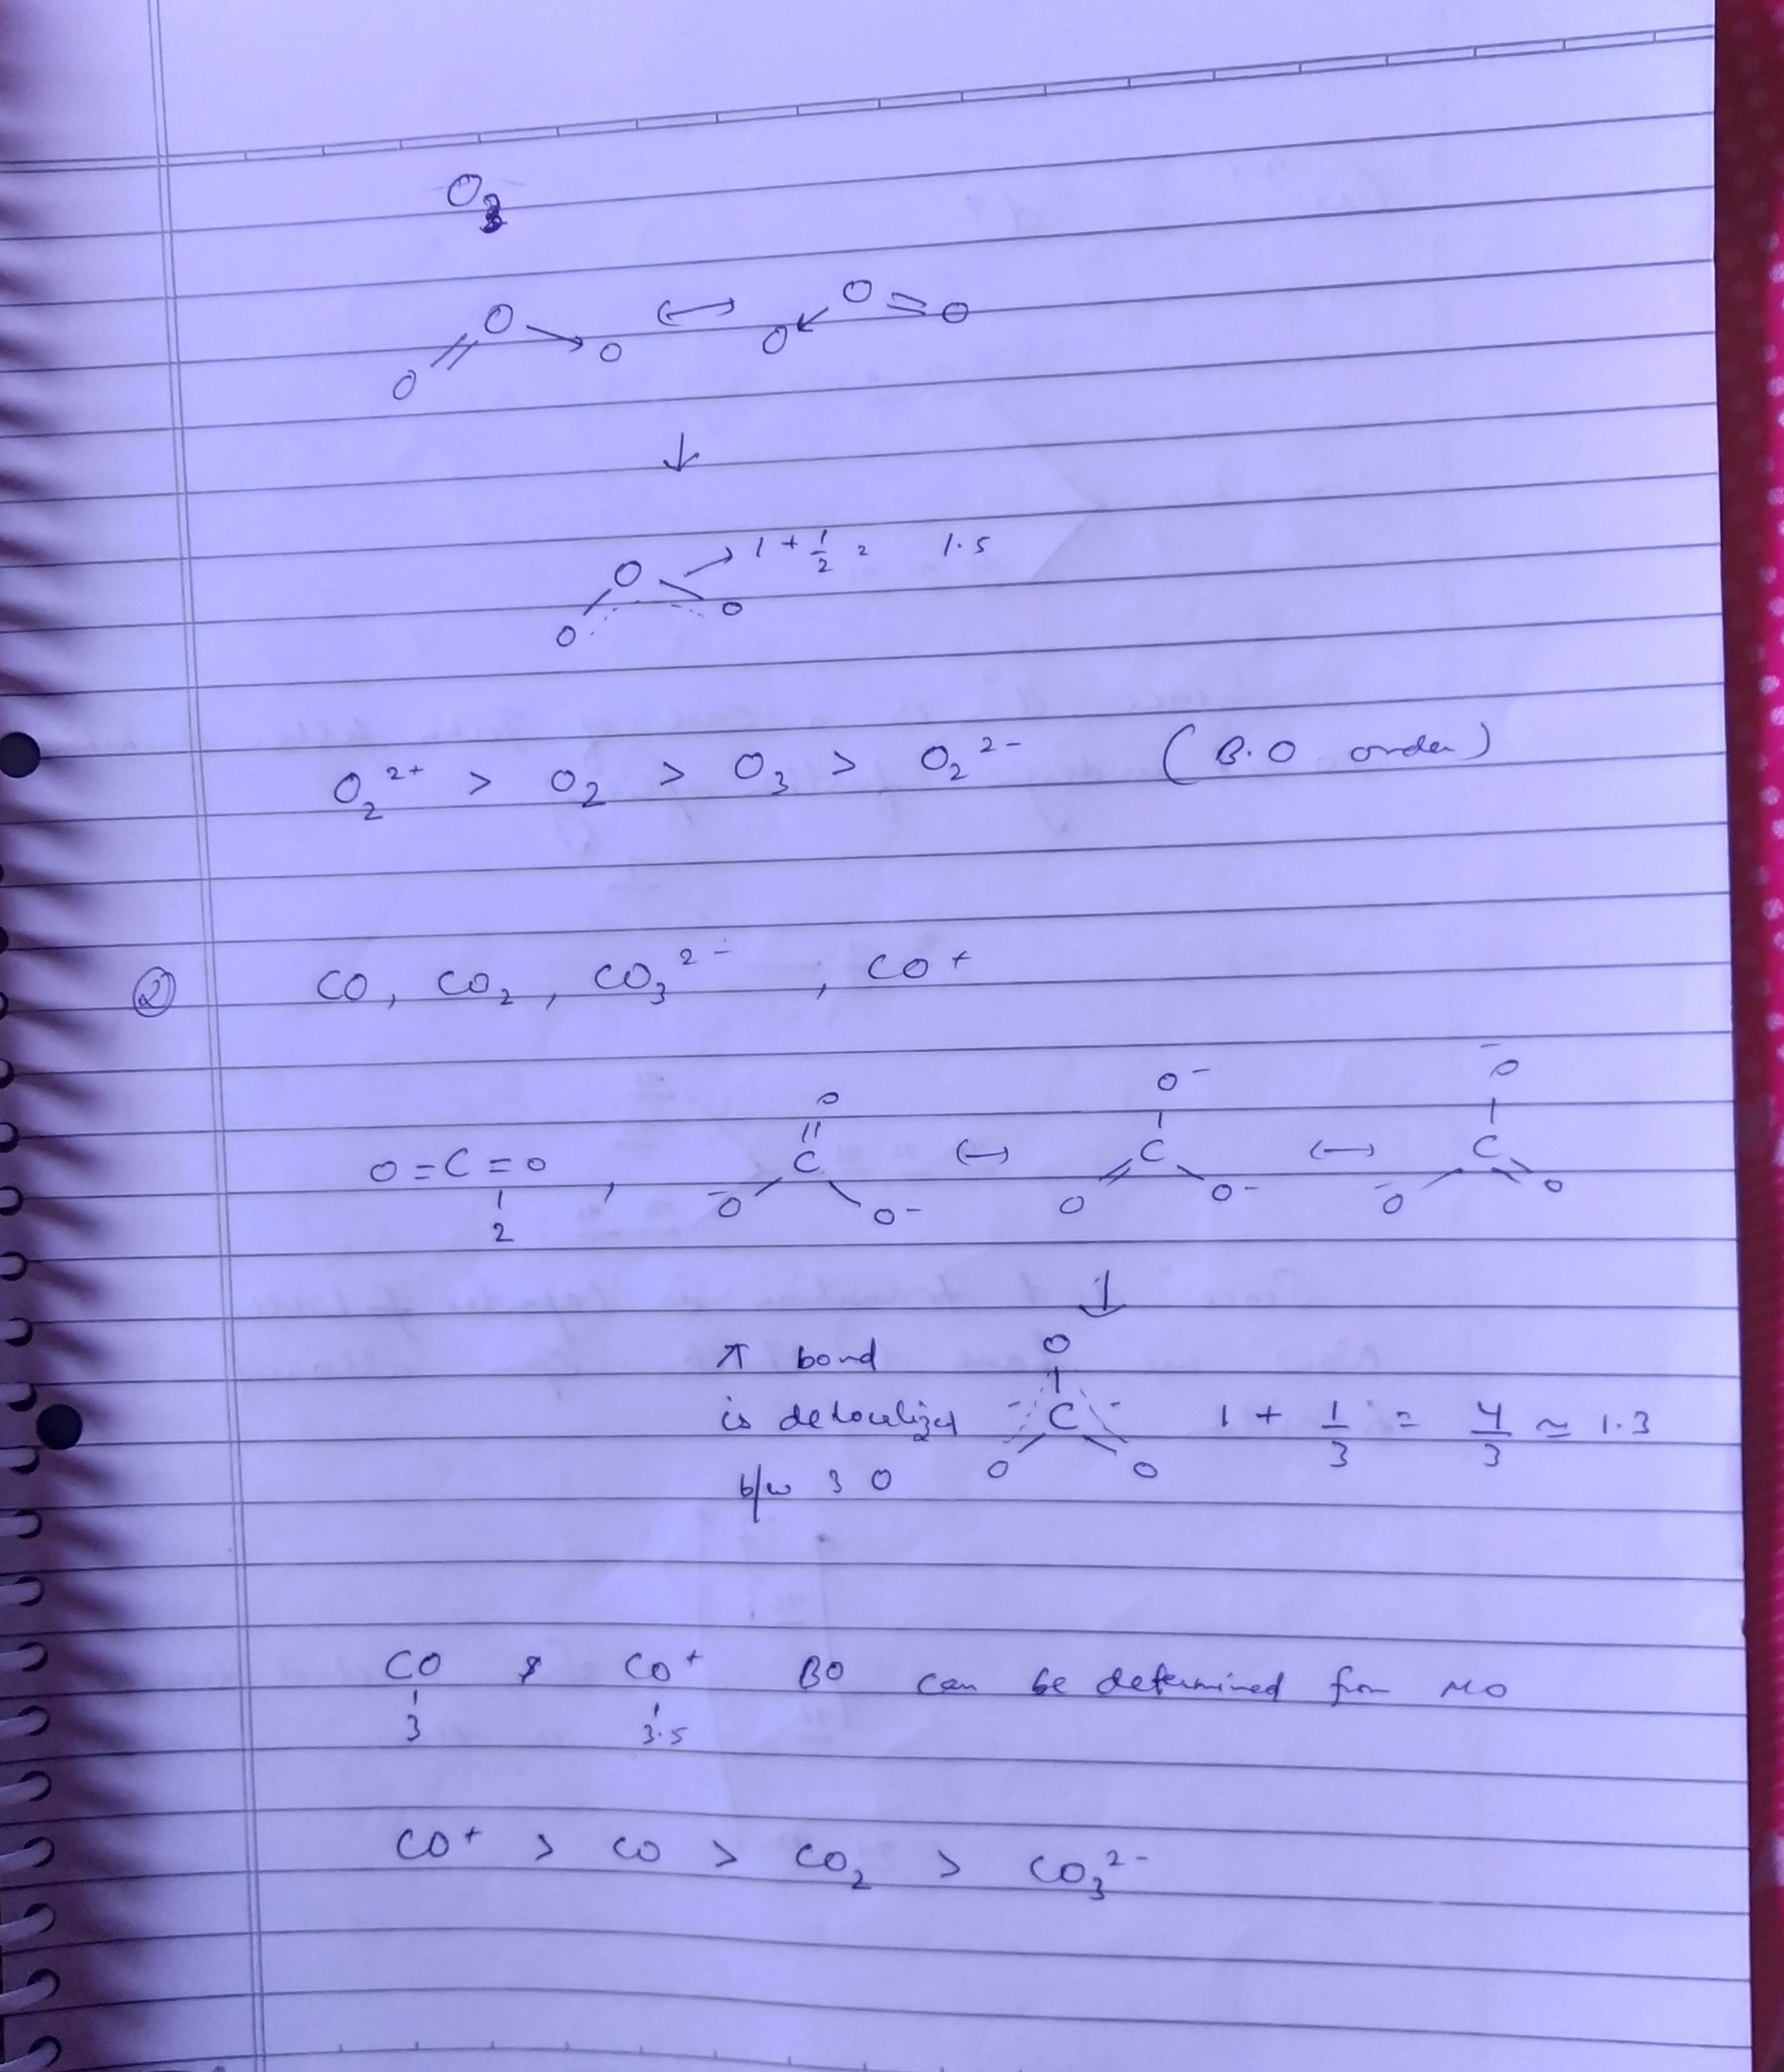 O₃
O=O→O ↔ O←O=O
↓
O O O → 1 + 1/2 = 1.5
O₂²⁺ > O₂ > O₃ > O₂²⁻ (B.O order)
② CO, CO₂, CO₃²⁻, CO⁺
O O⁻ ⁻O
O=C=O , C ↔ C ↔ C
2 ⁻O O⁻ O O⁻ ⁻O O
↓
π bond O
is delocalized C 1 + 1/3 = 4/3 ≃ 1.3
b/w 3 O O O
CO & CO⁺ BO can be determined from MO
3 3.5
CO⁺ > CO > CO₂ > CO₃²⁻